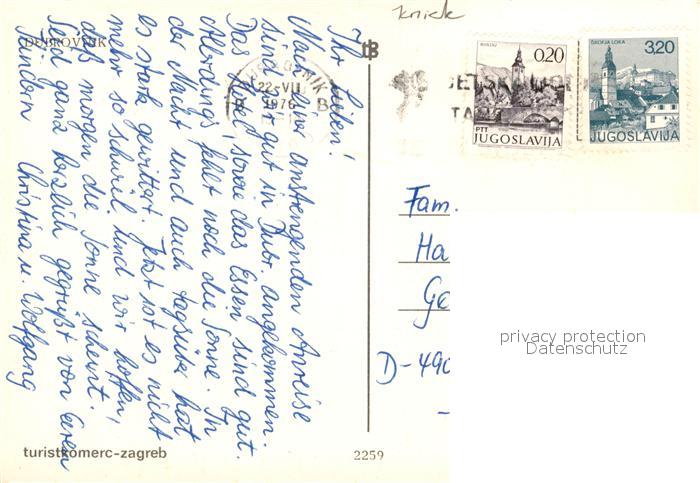 knick
DUBROVNIK
Ihr Lieben!
Nach einer anstrengenden Anreise
sind wir gut in Dubr. angekommen.
Das sowie das Essen sind gut.
Allerdings fehlt noch die Sonne. In
der Nacht und auch tagsüber hat
es stark gewittert. Jetzt ist es nicht
mehr so schwül und wir hoffen,
daß morgen die Sonne scheint.
Seid ganz herzlich gegrüßt von Euren
Kindern Christina u. Wolfgang
DUBROVNIK
22-VII
1976
B B
0,20
PTT
JUGOSLAVIJA
ŠKOFJA LOKA
3,20
JUGOSLAVIJA
Fam.
Ha
Ge
D-490
-
privacy protection
Datenschutz
turistkomerc-zagreb
2259